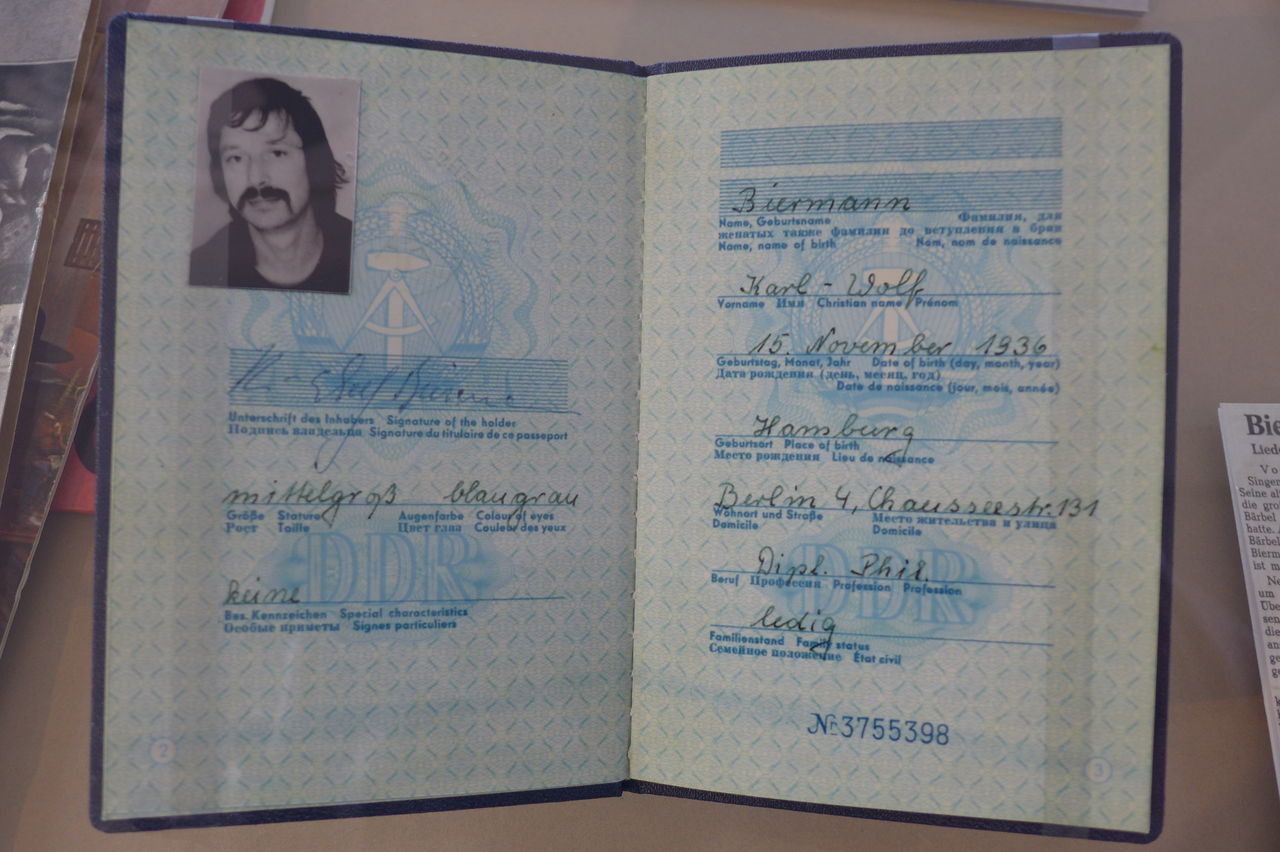 Unterschrift des Inhabers Signature of the holder
Подпись владельца Signature du titulaire de ce passeport
mittelgroß blaugrau
Größe Stature Augenfarbe Colour of eyes
Рост Taille Цвет глаз Couleur des yeux
DDR
keine
Bes. Kennzeichen Special characteristics
Особые приметы Signes particuliers
2
Biermann
Name, Geburtsname Фамилия, для
женатых также фамилия до вступления в брак
Name, name of birth Nom, nom de naissance
Karl - Wolf
Vorname Имя Christian name Prénom
15. November 1936
Geburtstag, Monat, Jahr Date of birth (day, month, year)
Дата рождения (день, месяц, год)
Date de naissance (jour, mois, année)
Hamburg
Geburtsort Place of birth
Место рождения Lieu de naissance
Berlin 4, Chausseestr. 131
Wohnort und Straße Место жительства и улица
Domicile Domicile
Dipl. Phil.
Beruf Профессия Profession Profession
DDR
ledig
Familienstand Family status
Семейное положение État civil
№ 3755398
3
Bie
Liede
Vo
Singen
Seine al
die gro
Bärbel
hatte.
Bärbel
Bierm
ist m
Ne
um
Übe
sen
die
an
ge